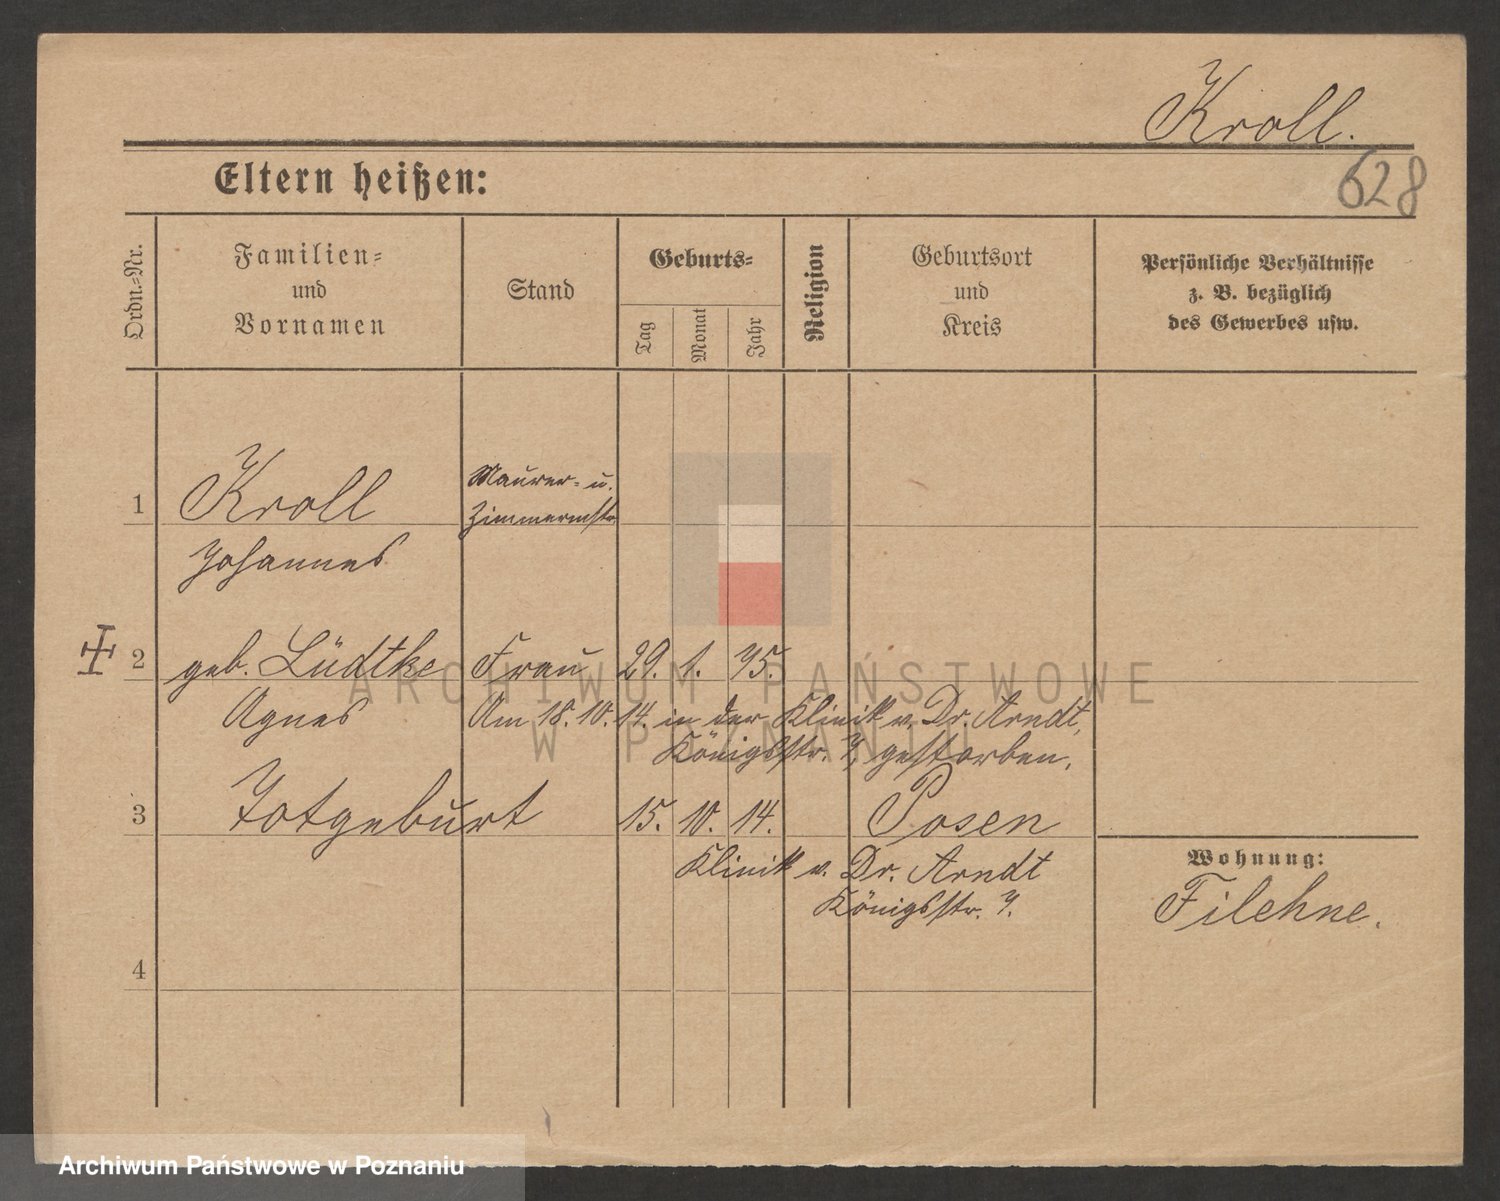 Kroll.
628
Eltern heißen:
Ordn.=Nr.
Familien=
und
Vornamen
Stand
Geburts=
Tag
Monat
Jahr
Religion
Geburtsort
und
Kreis
Persönliche Verhältnisse
z. B. bezüglich
des Gewerbes usw.
1
Kroll
Johannes
Maurer= u.
Zimmermstr.
2
geb. Lüdtke
Agnes
Frau
29. 1. 75.
Am 18. 10. 14. in der Klinik v. Dr. Arndt,
Königsstr. 7, gestorben.
3
Totgeburt
15. 10. 14.
Posen
Klinik v. Dr. Arndt
Königsstr. 7.
Wohnung:
Filehne.
4
ARCHIWUM PAŃSTWOWE
W POZNANIU
Archiwum Państwowe w Poznaniu